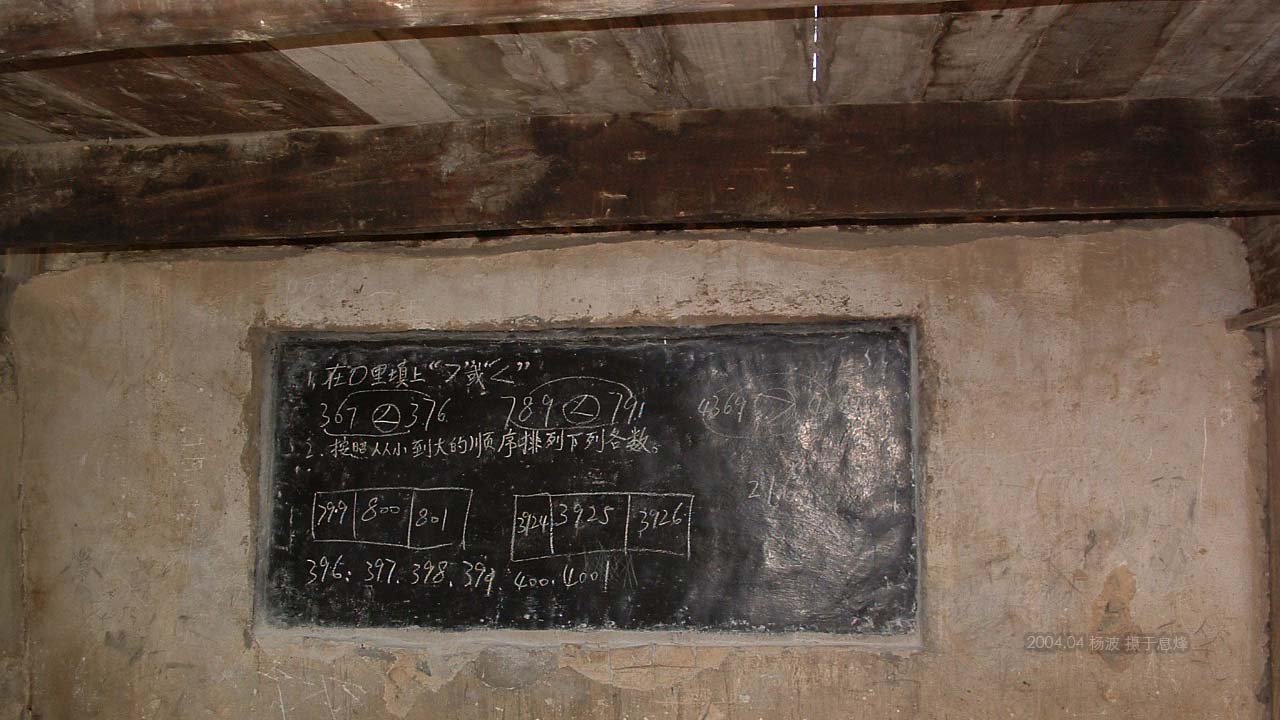 1, 在O里填上“>”或“<”
367 < 376 789 < 791 4369 >
2. 按照从小到大的顺序排列下列各数。
799 800 801 3924 3925 3926
396. 397. 398. 399 400. 4001
2004.04 杨波 摄于息烽